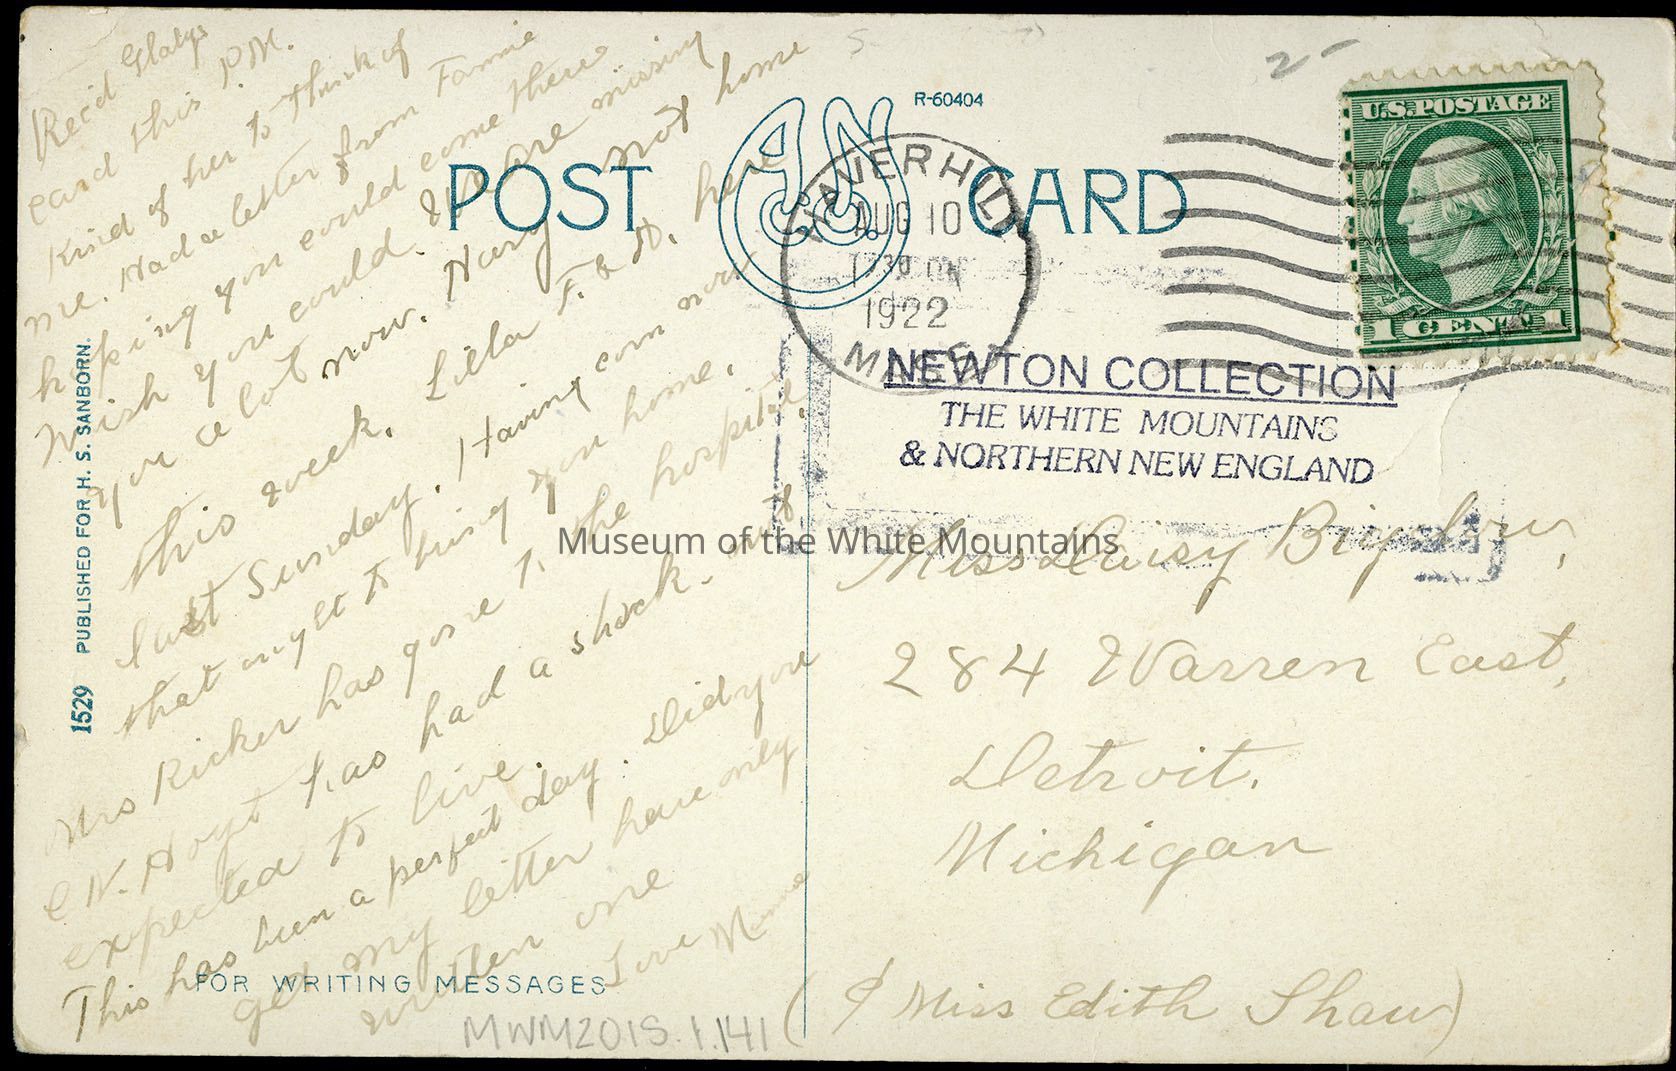 Rec'd Gladys
card this P.M.
Kind of her to think of
me. Had a letter from Fannie
hoping you could come there
Wish you could. We are missing
you a lot now. Harry not home
this week. Lilla F. & H. here
last Sunday. Having corn now
that ought to bring you home.
Mrs Ricker has gone to the hospital,
C N. Hoyt has had a shock. not
expected to live.
This has been a perfect day. Did you
get my letter have only
written one
Love
1529 PUBLISHED FOR H. S. SANBORN.
POST CARD
R-60404
AN
CO.
HAVERHILL
AUG 10
730
1922
MASS.
2-
U.S. POSTAGE
1 CENT 1
NEWTON COLLECTION
THE WHITE MOUNTAINS
& NORTHERN NEW ENGLAND
Museum of the White Mountains
Miss Daisy Bigelow,
284 Warren East,
Detroit.
Michigan
(℅ Miss Edith Shaw)
FOR WRITING MESSAGES
MWM2015.1.141